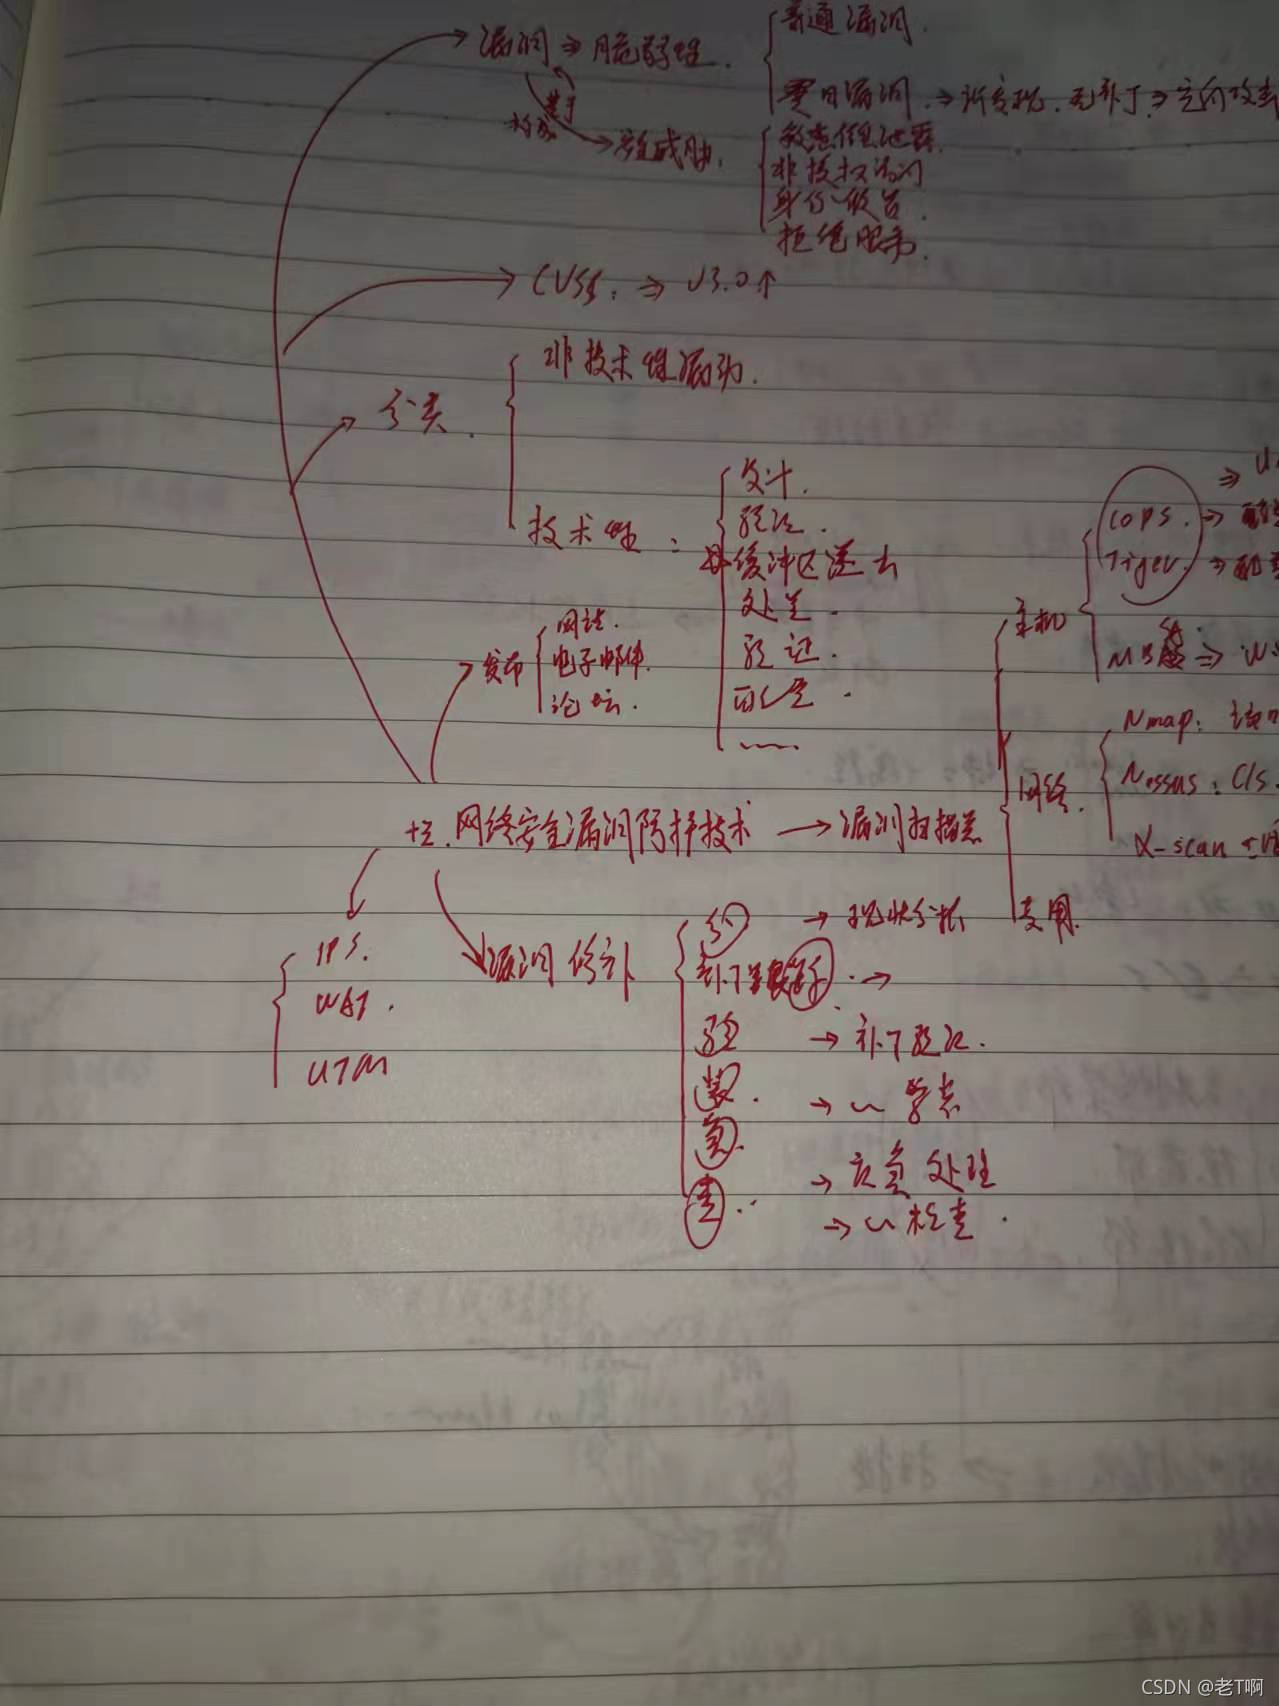 漏洞 ⇒ 脆弱性.
普通漏洞.
零日漏洞. → 新发现. 无补丁 → 定向攻击
基于
构成
→ 安全威胁.
敏感信息泄露.
非授权访问
身份假冒.
拒绝服务.
CVSS. ⇒ V3.0↑
分类.
非技术性漏洞.
技术性:
设计.
验证.
缓冲区溢出
验证.
配置.
发布
网站.
电子邮件.
论坛.
主机
COPS. →
Tiger. → 配
⇒ W
网络.
Nmap:
Nessus: C/S.
X-scan
专用.
十三. 网络安全漏洞防护技术 → 漏洞扫描器
IPS.
UTM
漏洞修补
分 → 现状分析
验 → 补丁验证.
装. → 〃 安装
应
→ 应急处理
查.. → 〃 检查.
CSDN @老T啊